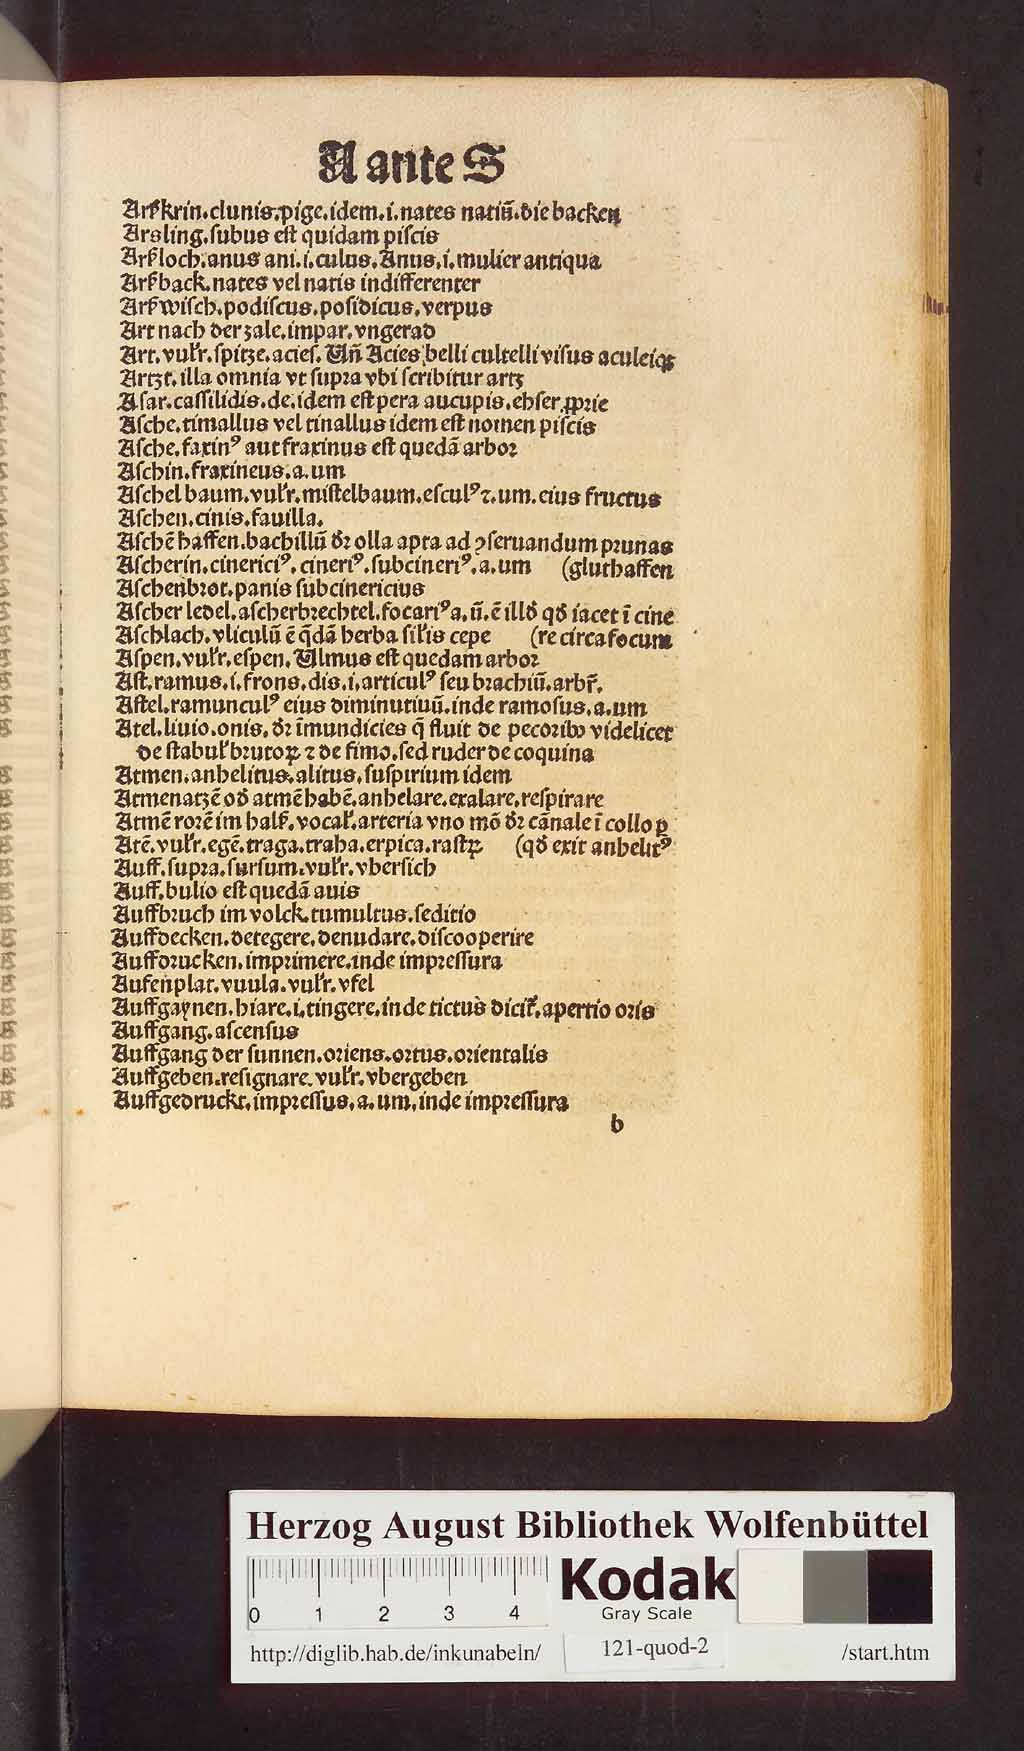 A ante S
Arßkrin.clunis.pige.idem.i.nates natiū.die backen
Arsling.subus est quidam piscis
Arßloch.anus ani.i.culus.Anus.i.mulier antiqua
Arßback.nates vel natis indifferenter
Arßwisch.podiscus.posidicus.verpus
Art nach der zale.impar.vngerad
Art.vulr.spitze.acies.Vn̄ Acies belli cultelli visus aculeiqꝫ
Artzt.illa omnia vt supra vbi scribitur artz
Asar.cassilidis.de.idem est pera aucupis.ehser ꝓprie
Asche.timallus vel tinallus idem est nomen piscis
Asche.faxinꝰ aut fraxinus est quedā arbor
Aschin.fraxineus.a.um
Aschel baum.vulr.mistelbaum.esculꝰ ⁊.um.eius fructus
Aschen.cinis.fauilla.
Aschē haffen.bachillū dr̄ olla apta ad ꝯseruandum prunas
Ascherin.cinericiꝰ.cineriꝰ.subcineriꝰ.a.um (gluthaffen
Aschenbrot.panis subcinericius
Ascher ledel.ascherbrechtel.focariꝰ a.ū.ē illd qd iacet ī cine
Aschlach.vliculū ē q̄dā herba silis cepe (re circa focum
Aspen.vulr.espen.Vlmus est quedam arbor
Ast.ramus.i.frons.dis.i.articulꝰ seu brachiū.arbr̄.
Astel.ramunculꝰ eius diminutiuū.inde ramosus.a.um
Atel.liuio.onis.dr̄ īmundicies q̄ fluit de pecoribꝰ videlicet
de stabul brutoꝝ ⁊ de fimo.sed ruder de coquina
Atmen.anhelitus.alitus.suspirium idem
Atmenatzē od atmē habē.anhelare.exalare.respirare
Atmē rorē im halß.vocal.arteria vno mō dr̄ cānale ī collo p
Atē.vulr.egē.traga.traha.erpica.rastꝝ (qd exit anhelitꝰ
Auff.supra.sursum.vulr.vbersich
Auff.bulio est quedā auis
Auffbruch im volck.tumultus.seditio
Auffdecken.detegere.denudare.discooperire
Auffdrucken.imprimere.inde impressura
Aufenplat.vuula.vulr.vfel
Auffgaynen.hiare.i.tingere.inde tictus dicit̄.apertio oris
Auffgang.ascensus
Auffgang der sunnen.oriens.ortus.orientalis
Auffgeben.resignare.vulr.vbergeben
Auffgedruckt.impressus.a.um.inde impressura
b
Herzog August Bibliothek Wolfenbüttel
0 1 2 3 4
Kodak
Gray Scale
http://diglib.hab.de/inkunabeln/ 121-quod-2 /start.htm